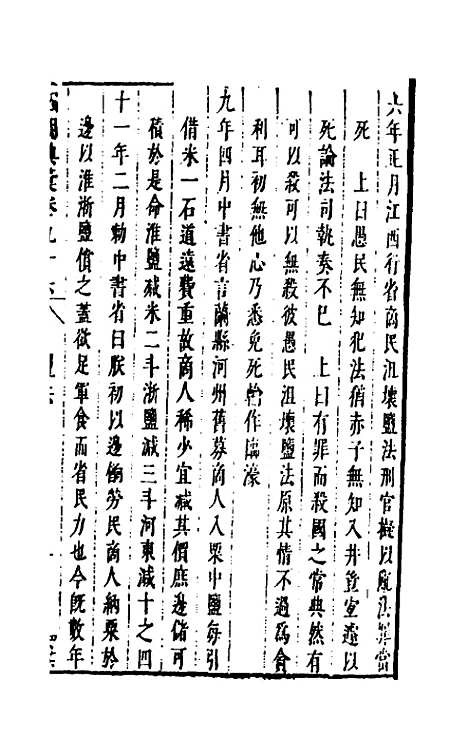 六年正月江西行省商民沮壞鹽法刑官擬以亂法罪當
死　上曰愚民無知犯法猶赤子無知入井豈宜遽以
死論法司執奏不已　上曰有罪而殺國之常典然有
可以殺可以無殺彼愚民沮壞鹽法原其情不過爲貪
利耳初無他心乃悉免死輸作臨濠
九年四月中書省言蘭縣河州舊募商人入粟中鹽每引
借米一石道遠費重故商人稀少宜減其價庶邊儲可
積於是命淮鹽減米二斗浙鹽減三斗河東減十之四
十一年二月勅中書省曰朕初以邊餉勞民商人納粟於
邊以淮浙鹽償之蓋欲足軍食而省民力也今旣數年
國朝典彙卷九十六